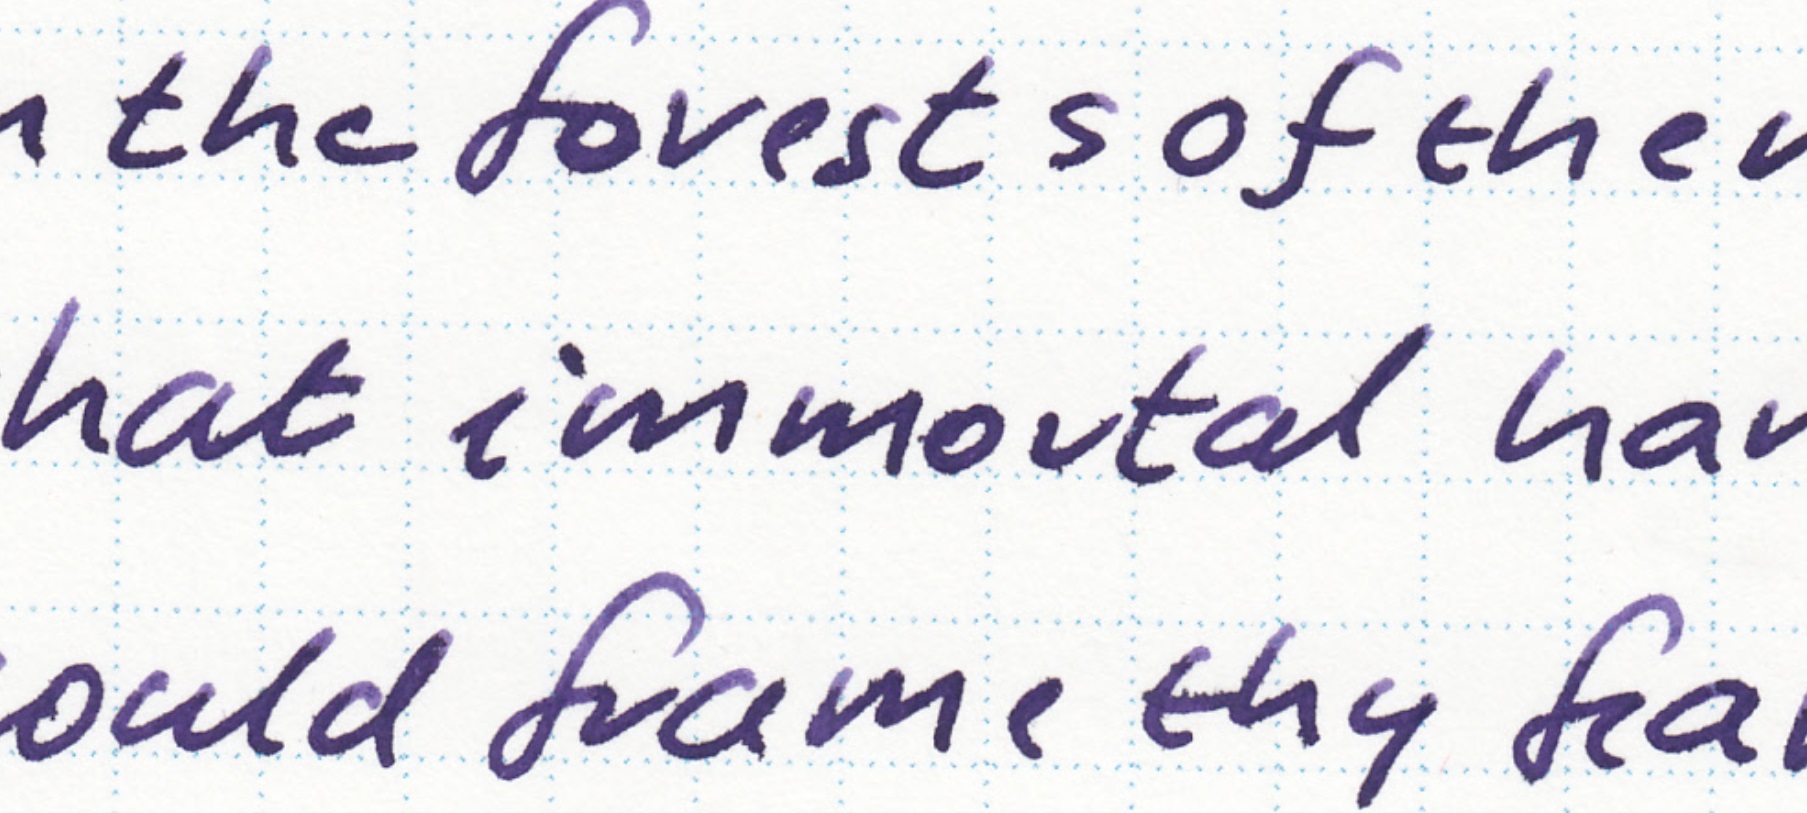 n the forests of the n
hat immortal han
ould frame thy fea